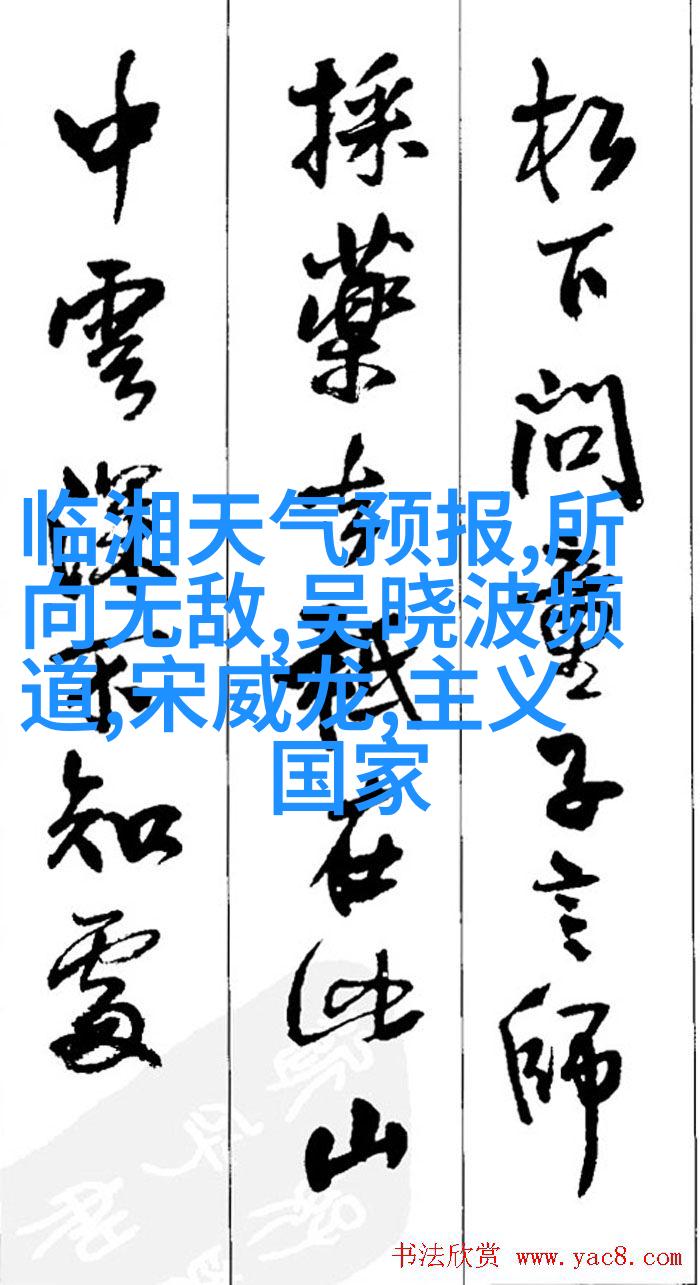 松下問童子言師
採藥去在此山
中雲深不知處
临湘天气预报,所
向无敌,吴晓波频
道,宋威龙,主义
国家
书法欣赏 www.yac8.com